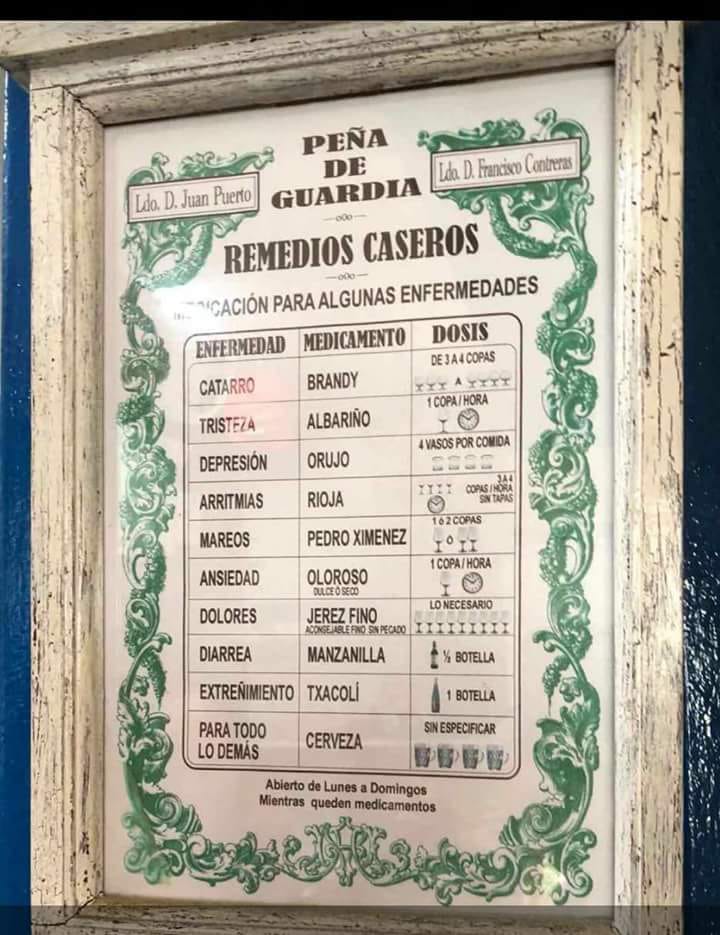 PEÑA
DE
GUARDIA
Ldo. D. Juan Puerto
Ldo. D. Francisco Contreras
REMEDIOS CASEROS
PARA ALGUNAS ENFERMEDADES
ENFERMEDAD MEDICAMENTO DOSIS
CATARRO BRANDY DE 3 A 4 COPAS
A
TRISTEZA ALBARIÑO 1 COPA / HORA
DEPRESIÓN ORUJO 4 VASOS POR COMIDA
ARRITMIAS RIOJA 3 A 4
COPAS / HORA
SIN TAPAS
MAREOS PEDRO XIMENEZ 1 ó 2 COPAS
Ó
ANSIEDAD OLOROSO 1 COPA / HORA
DULCE Ó SECO
DOLORES JEREZ FINO LO NECESARIO
ACONSEJABLE FINO SIN PECADO
DIARREA MANZANILLA ½ BOTELLA
EXTREÑIMIENTO TXACOLÍ 1 BOTELLA
PARA TODO
LO DEMÁS CERVEZA SIN ESPECIFICAR
Abierto de Lunes a Domingos
Mientras queden medicamentos